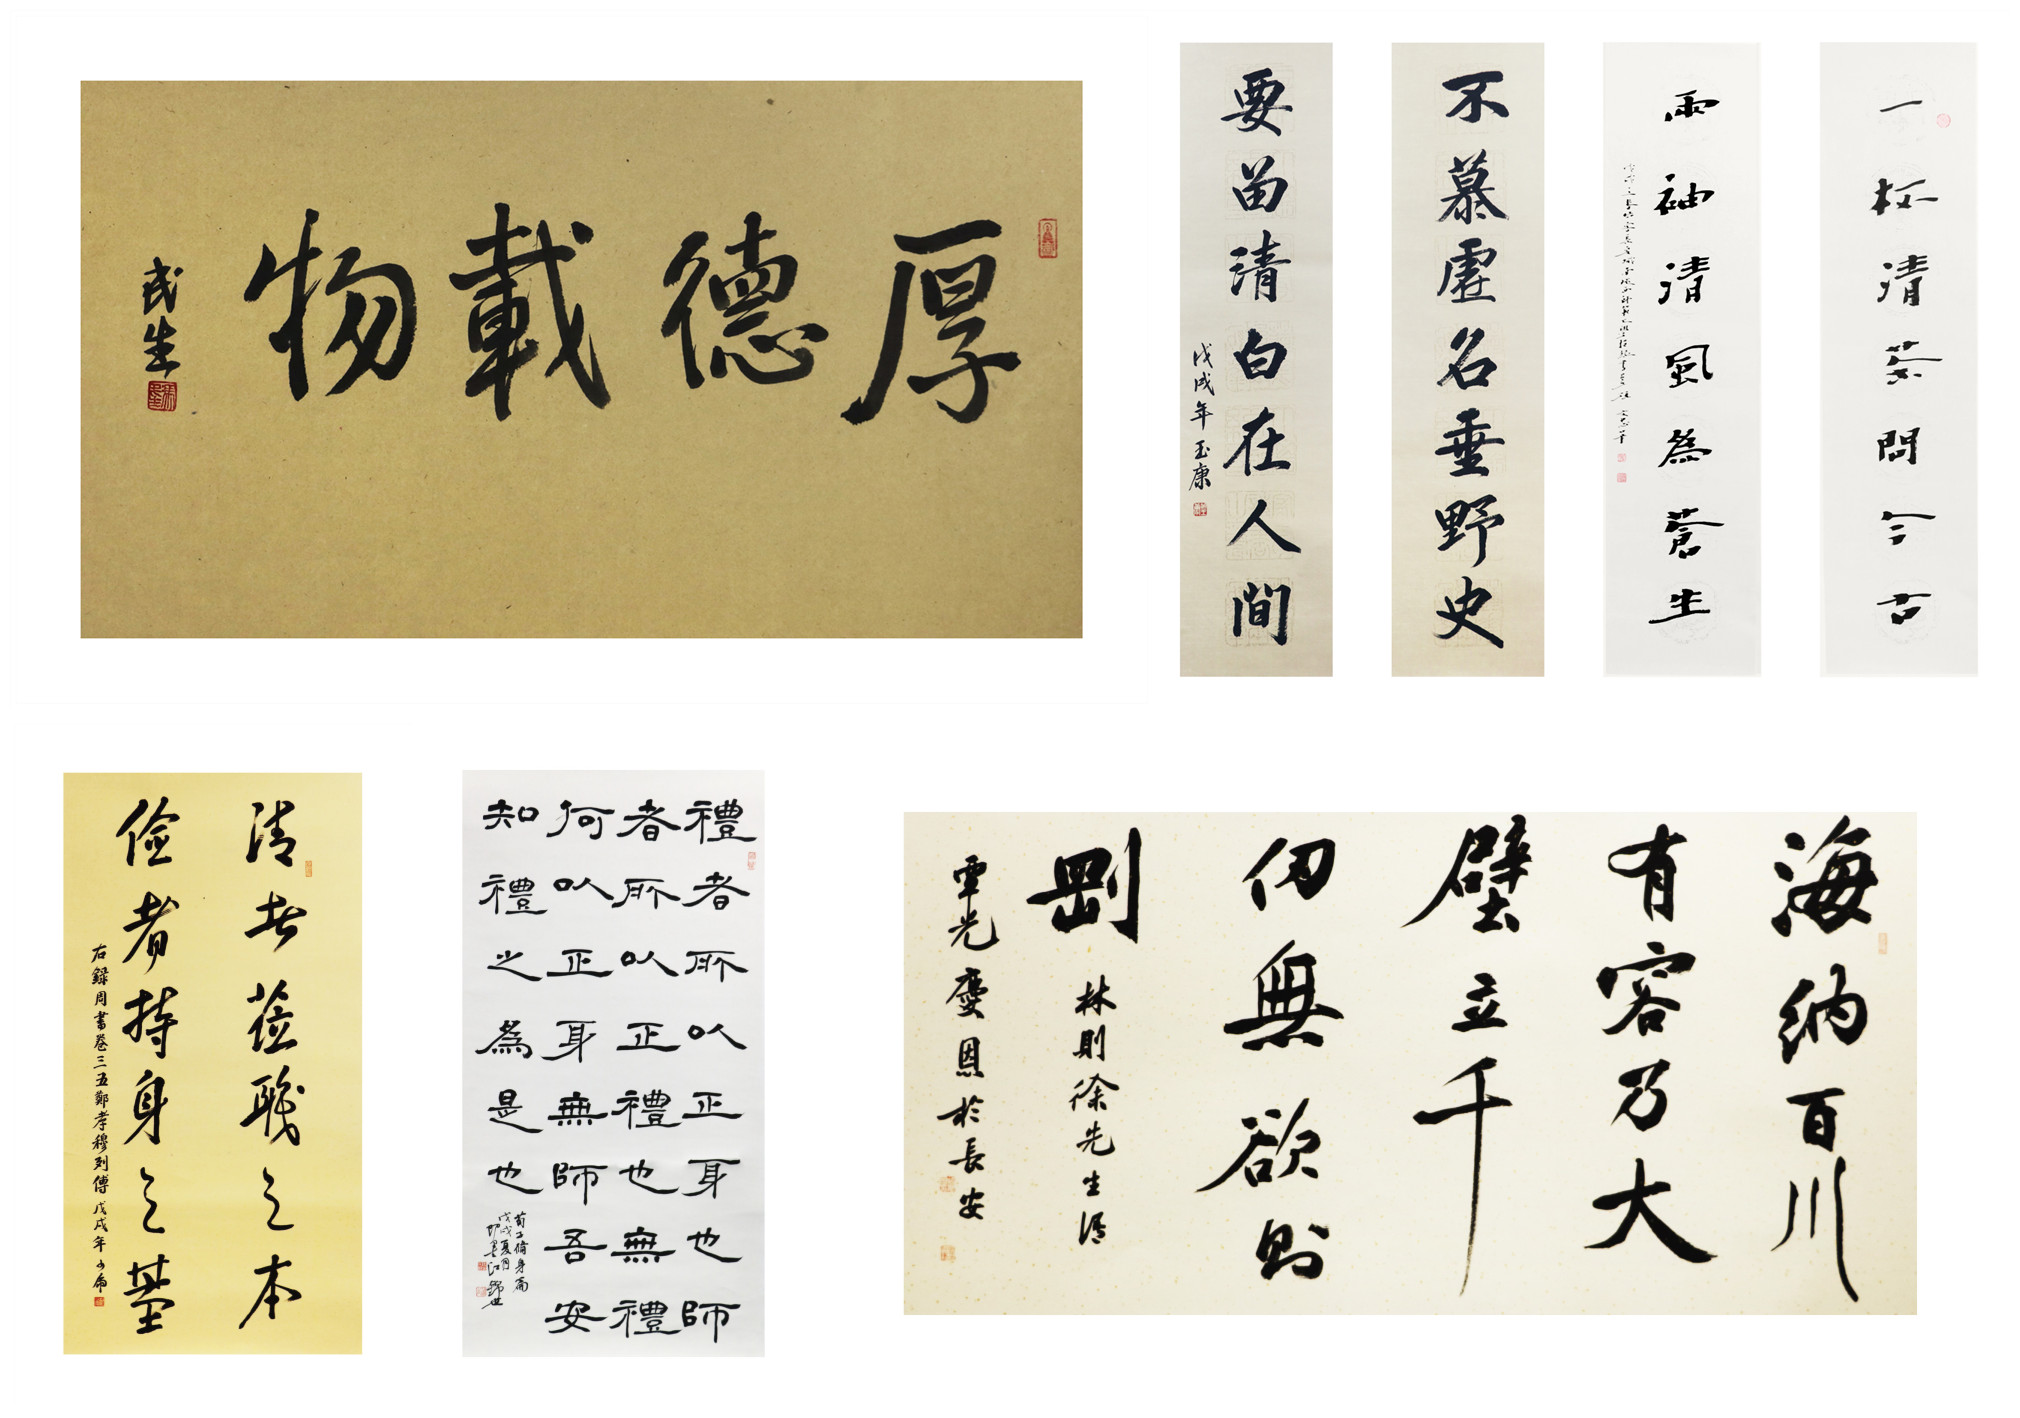 厚德載物
武生
不慕虛名垂野史
要留清白在人間
戊戌年 玉康
一杯清茶問今古
兩袖清風為蒼生
清者蒞職之本
儉者持身之基
右錄周書卷三五鄭孝穆列傳 戊戌年
禮者所以正身也師
者所以正禮也無禮
何以正身無師吾安
知禮之為是也
荀子脩身篇
戊戌夏月
海納百川
有容乃大
壁立千
仞無欲則
剛
林則徐先生語
覃光慶恩於長安